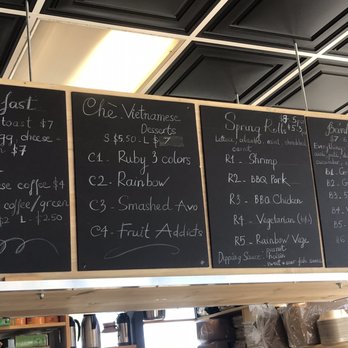 fast
toast $7
egg cheese
$7
coffee $4
coffee/green
$2 L - $2.50
Chè - Vietnamese
Desserts
S $5.50 - L $7
C1 - Ruby 3 colors
C2 - Rainbow
C3 - Smashed Avo
C4 - Fruit Addicts
Spring Rolls
lettuce, mint, shredded
carrot
R1 - Shrimp
R2 - BBQ Pork
R3 - BBQ Chicken
R4 - Vegetarian
R5 - Rainbow Vege
Dipping Sauce: peanut
hoisin
sweet + sour fish sauce